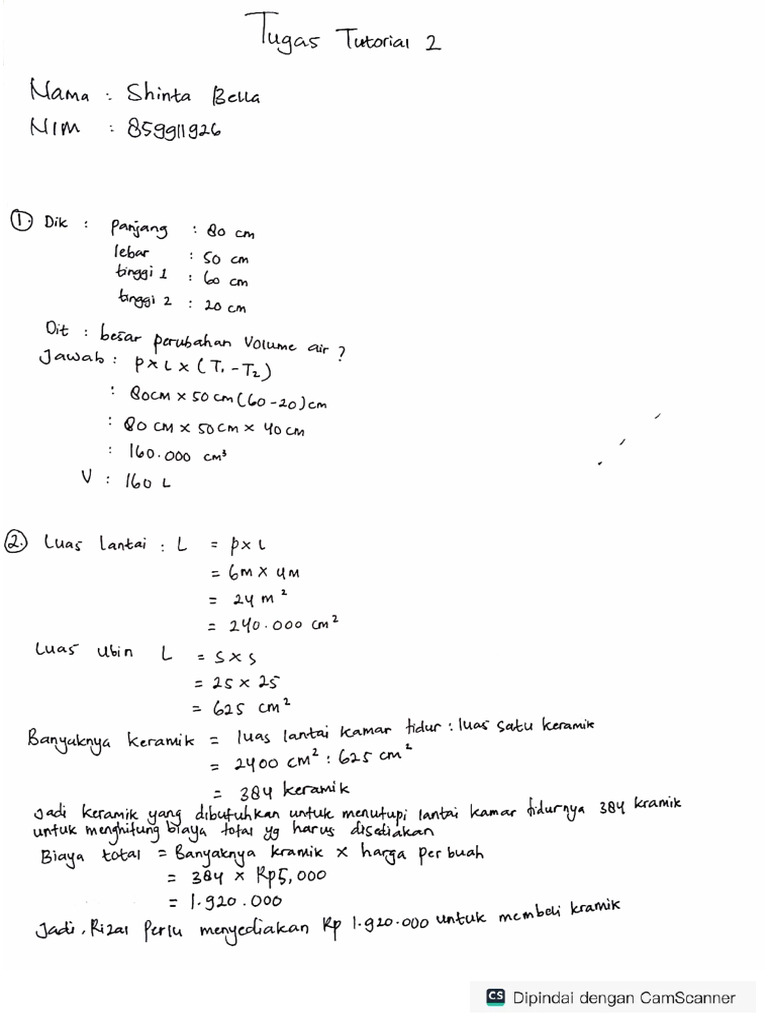 Tugas Tutorial 2
Nama : Shinta Bella
NIM : 859911926
1. Dik : panjang : 80 cm
lebar : 50 cm
tinggi 1 : 60 cm
tinggi 2 : 20 cm
Dit : besar perubahan Volume air ?
Jawab : P x L x (T1 - T2)
: 80cm x 50 cm (60-20) cm
: 80 cm x 50cm x 40 cm
: 160.000 cm³
V : 160 L
2. Luas lantai : L = p x l
= 6m x 4m
= 24 m²
= 240.000 cm²
Luas ubin L = s x s
= 25 x 25
= 625 cm²
Banyaknya keramik = luas lantai kamar tidur : luas satu keramik
= 2400 cm² : 625 cm²
= 384 keramik
Jadi keramik yang dibutuhkan untuk menutupi lantai kamar tidurnya 384 kramik
untuk menghitung biaya total yg harus disediakan
Biaya total = Banyaknya kramik x harga per buah
= 384 x Rp5,000
= 1.920.000
Jadi, Rizal Perlu menyediakan Rp 1.920.000 untuk membeli kramik
CS Dipindai dengan CamScanner